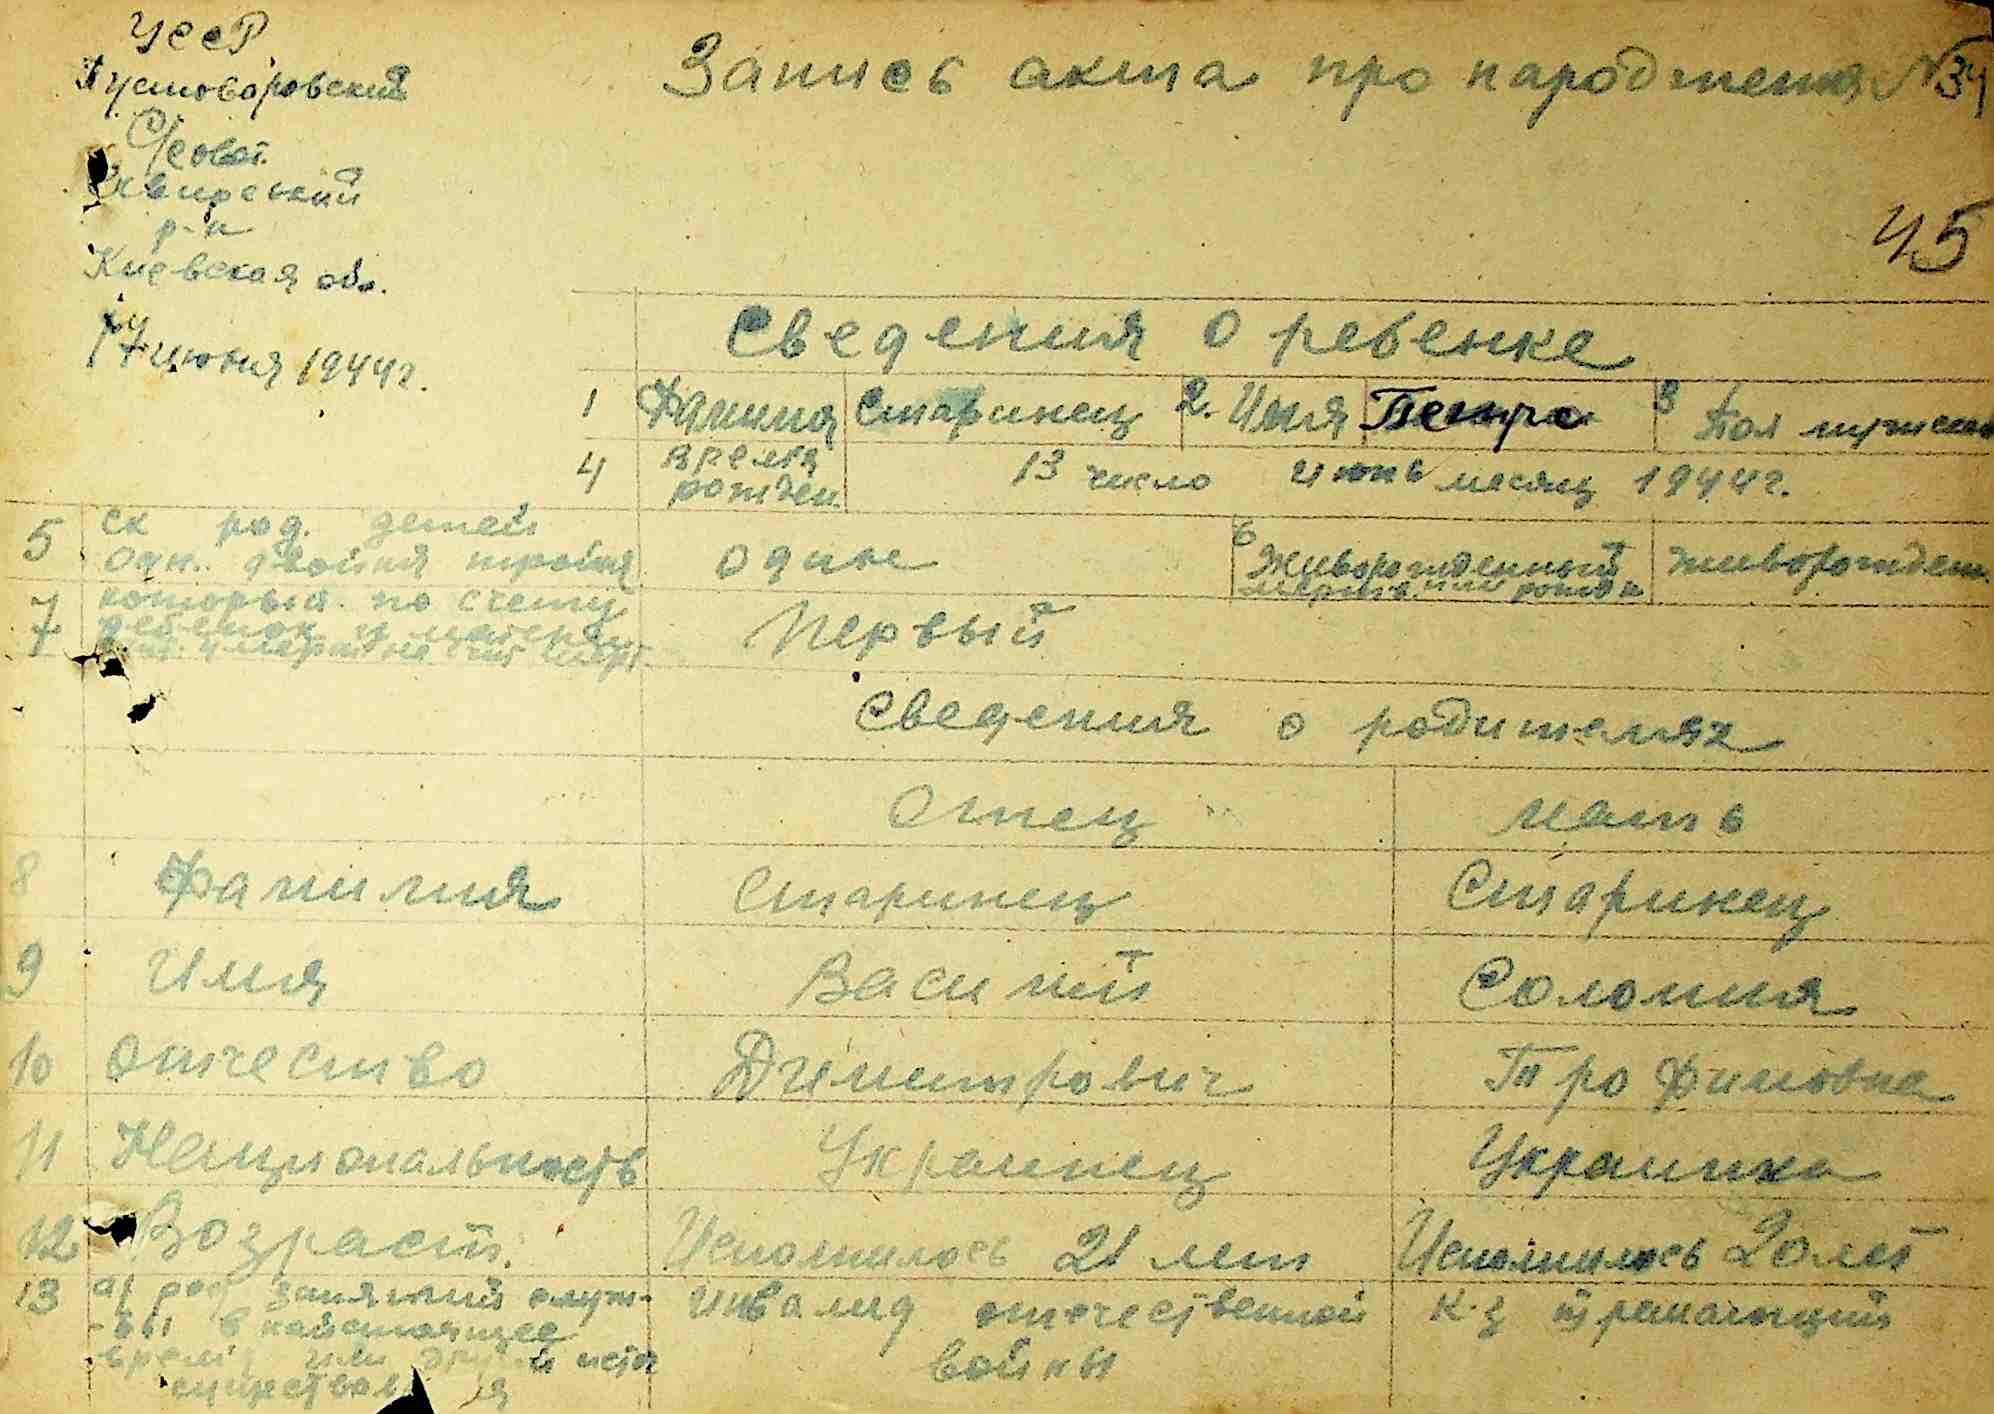 УССР
Пустоваровский
С/совет
Сквирський
р-н
Киевская обл.
17 июня 1944г.
Запись акта про народження № 34
45
Сведения о ребенке
1 Фамилия Старинец 2. Имя Петро 3 Пол мужской
4 время рожден. 13 число июнь месяц 1944г.
5 ск род. детей
одн. двойня тройня один 6 Живорожденный живорожден.
мертв. или рожден
7 который по счету
ребенок у матери первый
Сведения о родителях
Отец мать
8 Фамилия Старинец Старинец
9 Имя Василий Соломия
10 отчество Димитрович Трофимовна
11 Национальность Украинец Украинка
12 Возраст. Исполнилось 21 лет Исполнилось 20 лет
13 а) род занятий служ- инвалид отечественной к-з
-бы в настоящее войны
время или другий